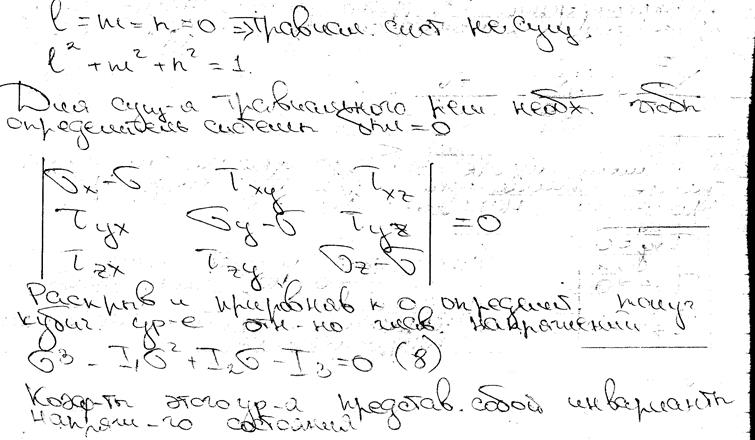 l = m = n = 0 ⇒ тривиал. сист не сущ.
l² + m² + n² = 1.
Для сущ-я тривиального реш необх. чтоб
определитель системы был = 0
| σx-σ τxy τxz |
| τyx σy-σ τyz | = 0
| τzx τzy σz-σ |
Раскрыв и приравняв к 0 определит. получ
кубич. ур-е отн-но напряжений
σ³ - I₁σ² + I₂σ - I₃ = 0 (8)
Коэф-ты этого ур-я представ. собой инварианты
напряж-го состояния